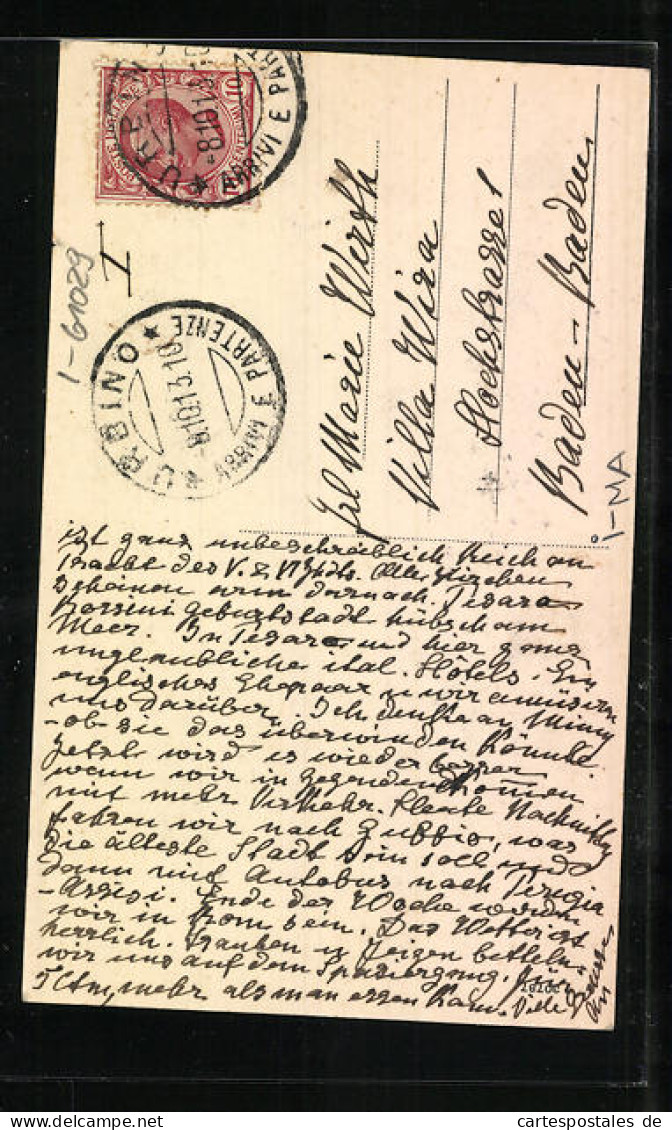 URBINO
ARRIVI E PARTENZE
-8.10.13
10
URBINO
ARRIVI E PARTENZE
-8.10.13.10
1-61029
Frl Marie Wirth
Villa Wira
Hochstrasse 1
Baden-Baden
1-MA
ist ganz unbeschreiblich Reich an
Pracht des V. z Kirchen
scheinen arm darnach. Pesaro
Rossini geburtstadt hübsch am
Meer. In Pesaro und hier ganz
unglaubliche ital. Hôtels. Ein
englisches Ehepaar u wir amüsiren
uns darüber. Ich denke an Mimy
- ob sie das überwinden könnte.
Jetzt wird es wieder besser
wenn wir in Gegenden kommen
mit mehr Verkehr. Heute Nachmittag
fahren wir nach Gubbio, was
die älteste Stadt sein soll und
dann mit Autobus nach Perugia
- Assisi. Ende der Woche werden
wir in Rom sein. Das Wetter ist
herrlich. Trauben u Feigen betteln
wir uns auf dem Spaziergang. Für
5 Ctm, mehr als man essen kann. Viele Grüsse
cartespostales.de
cartespostales.de